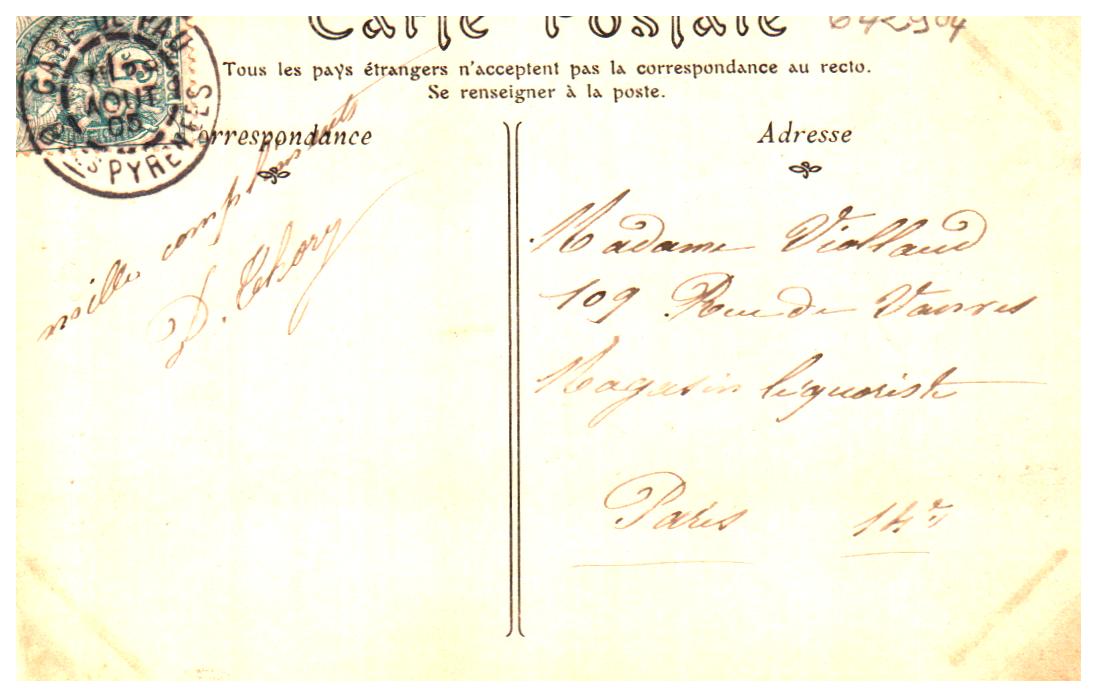 Carte Postale
642904
Tous les pays étrangers n'acceptent pas la correspondance au recto.
Se renseigner à la poste.
GARE DE PAU
AOUT
05
PYRENEES
Correspondance
mille compliments
D. Thory
Adresse
Madame Viollaud
109 Rue de Vanves
Magasin liquoriste
Paris 14e